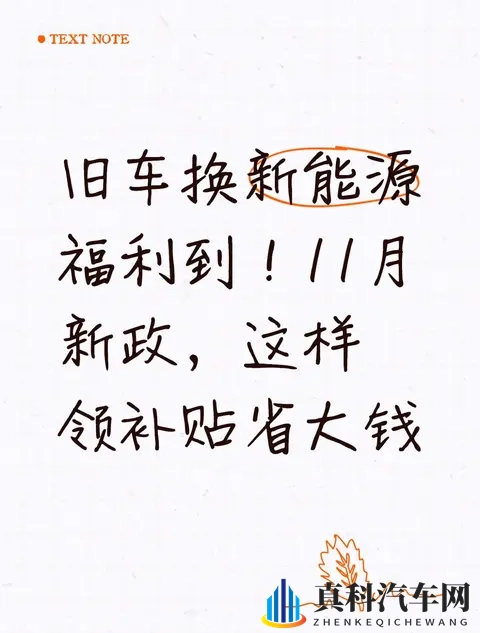 TEXT NOTE
旧车换新能源
福利到！11月
新政，这样
领补贴省大钱
真科汽车网
ZHENKEQICHEWANG